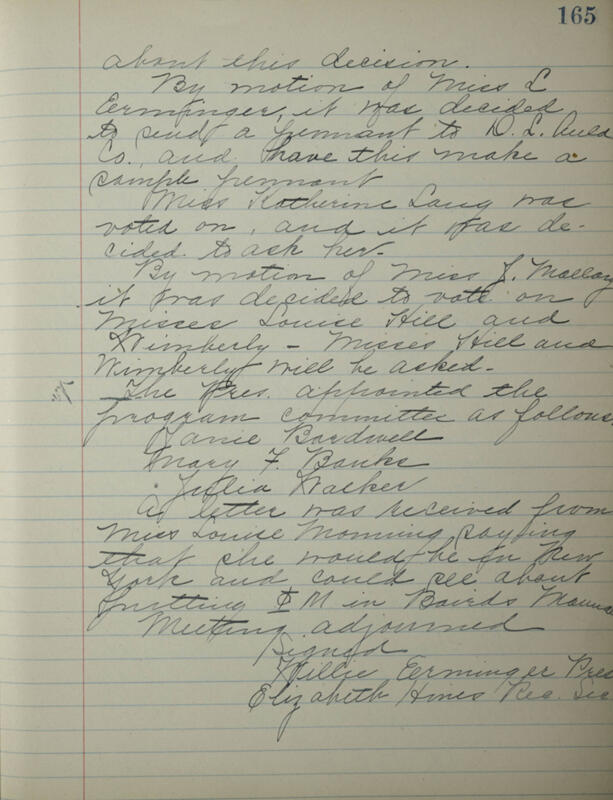 165
about this decision.
By motion of Miss L
Eerminger, it was decided
to send a pennant to D. L. Auld
Co., and have this make a
sample pennant
Miss Katherine Lang was
voted on, and it was de-
cided to ask her.
By motion of Miss J. Mallary
it was decided to vote on
Misses Louise Hill and
Wimberly - Misses Hill and
Wimberly will be asked -
The Pres. appointed the
program committee as follows.
Janie Bardwell
Mary F. Banks
Julia Walker
A letter was received from
Miss Louise Monning saying
that she would be in New
York and could see about
putting Φ M in Bairds Manual
Meeting adjourned
Signed
Willie Eerminger Pres
Elizabeth Hines Rec. Sec